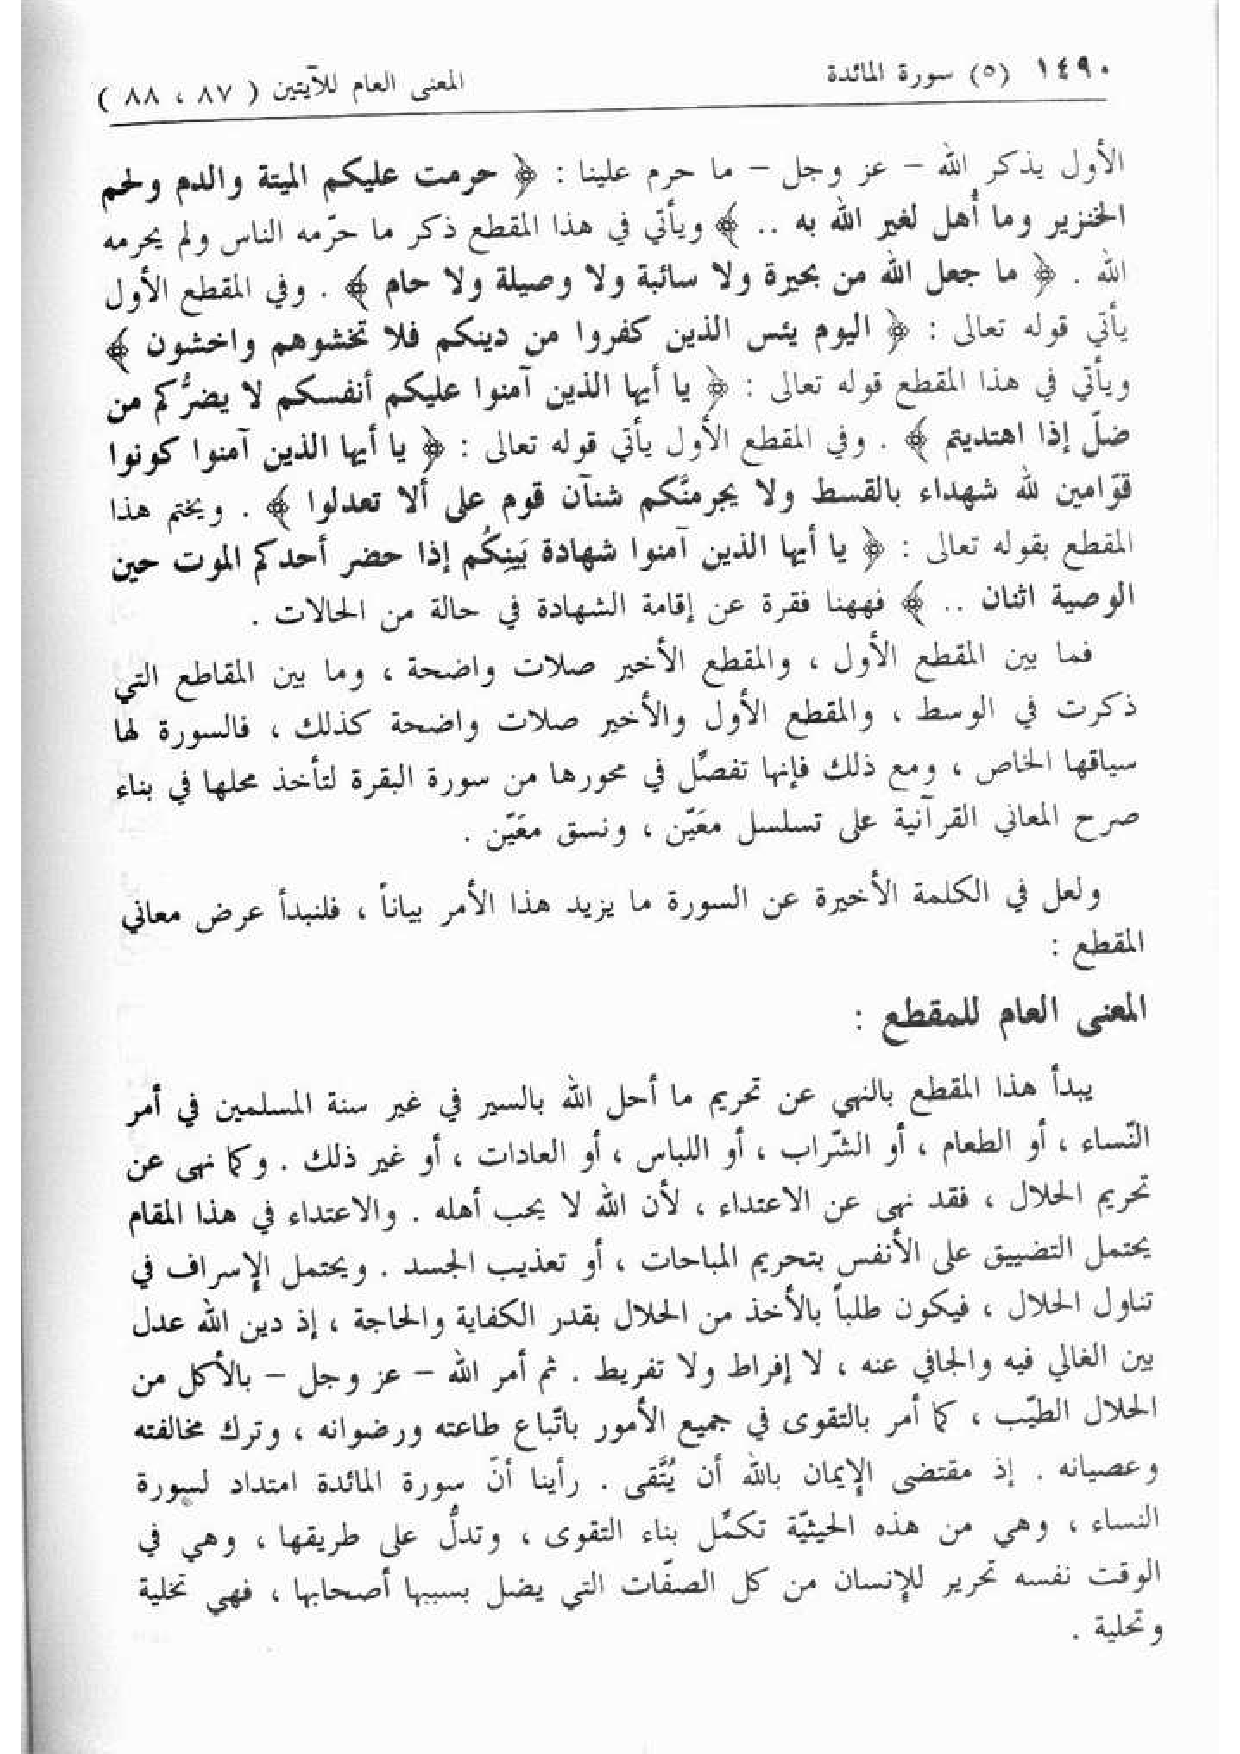 ١٤٩٠ (٥) سورة المائدة المعنى العام للآيتين ( ٨٧ ، ٨٨ )
الأول يذكر الله – عز وجل – ما حرم علينا : ﴿ حرمت عليكم الميتة والدم ولحم
الخنزير وما أُهل لغير الله به .. ﴾ ويأتي في هذا المقطع ذكر ما حرّمه الناس ولم يحرمه
الله . ﴿ ما جعل الله من بحيرة ولا سائبة ولا وصيلة ولا حام ﴾ . وفي المقطع الأول
يأتي قوله تعالى : ﴿ اليوم يئس الذين كفروا من دينكم فلا تخشوهم واخشون ﴾
ويأتي في هذا المقطع قوله تعالى : ﴿ يا أيها الذين آمنوا عليكم أنفسكم لا يضرُّكم من
ضلّ إذا اهتديتم ﴾ . وفي المقطع الأول يأتي قوله تعالى : ﴿ يا أيها الذين آمنوا كونوا
قوّامين لله شهداء بالقسط ولا يجرمنَّكم شنآن قوم على ألا تعدلوا ﴾ . ويختم هذا
المقطع بقوله تعالى : ﴿ يا أيها الذين آمنوا شهادة بَينِكُم إذا حضر أحدكم الموت حين
الوصية اثنان .. ﴾ فههنا فقرة عن إقامة الشهادة في حالة من الحالات .
فما بين المقطع الأول ، والمقطع الأخير صلات واضحة ، وما بين المقاطع التي
ذكرت في الوسط ، والمقطع الأول والأخير صلات واضحة كذلك ، فالسورة لها
سياقها الخاص ، ومع ذلك فإنها تفصِّل في محورها من سورة البقرة لتأخذ محلها في بناء
صرح المعاني القرآنية على تسلسل معَيّن ، ونسق معَيّن .
ولعل في الكلمة الأخيرة عن السورة ما يزيد هذا الأمر بياناً ، فلنبدأ عرض معاني
المقطع :
المعنى العام للمقطع :
يبدأ هذا المقطع بالنهي عن تحريم ما أحل الله بالسير في غير سنة المسلمين في أمر
النّساء ، أو الطعام ، أو الشّراب ، أو اللباس ، أو العادات ، أو غير ذلك . وكما نهى عن
تحريم الحلال ، فقد نهى عن الاعتداء ، لأن الله لا يحب أهله . والاعتداء في هذا المقام
يحتمل التضييق على الأنفس بتحريم المباحات ، أو تعذيب الجسد . ويحتمل الإسراف في
تناول الحلال ، فيكون طلباً بالأخذ من الحلال بقدر الكفاية والحاجة ، إذ دين الله عدل
بين الغالي فيه والجافي عنه ، لا إفراط ولا تفريط . ثم أمر الله – عز وجل – بالأكل من
الحلال الطيّب ، كما أمر بالتقوى في جميع الأمور باتّباع طاعته ورضوانه ، وترك مخالفته
وعصيانه . إذ مقتضى الإيمان بالله أن يُتَّقى . رأينا أنّ سورة المائدة امتداد لسورة
النساء ، وهي من هذه الحيثيّة تكمِّل بناء التقوى ، وتدلُّ على طريقها ، وهي في
الوقت نفسه تحرير للإنسان من كل الصفّات التي يضل بسببها أصحابها ، فهي تخلية
وتحلية .